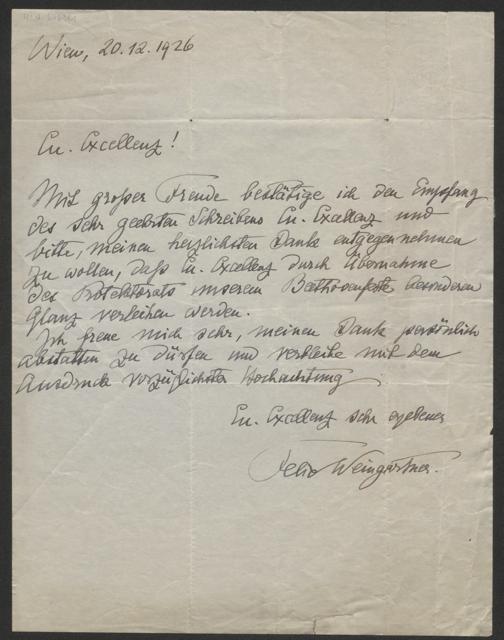 Wien, 20.12.1926
Eu. Excellenz!
Mit großer Freude bestätige ich den Empfang
des sehr geehrten Schreibens Eu. Excellenz und
bitte, meinen herzlichsten Dank entgegennehmen
zu wollen, daß Eu. Excellenz durch Übernahme
des Protektorats unserem Beethovenfeste besonderen
Glanz verleihen werden.
Ich freue mich sehr, meinen Dank persönlich
abstatten zu dürfen und verbleibe mit dem
Ausdruck vorzüglichster Hochachtung
Eu. Excellenz sehr ergebener
Felix Weingartner.